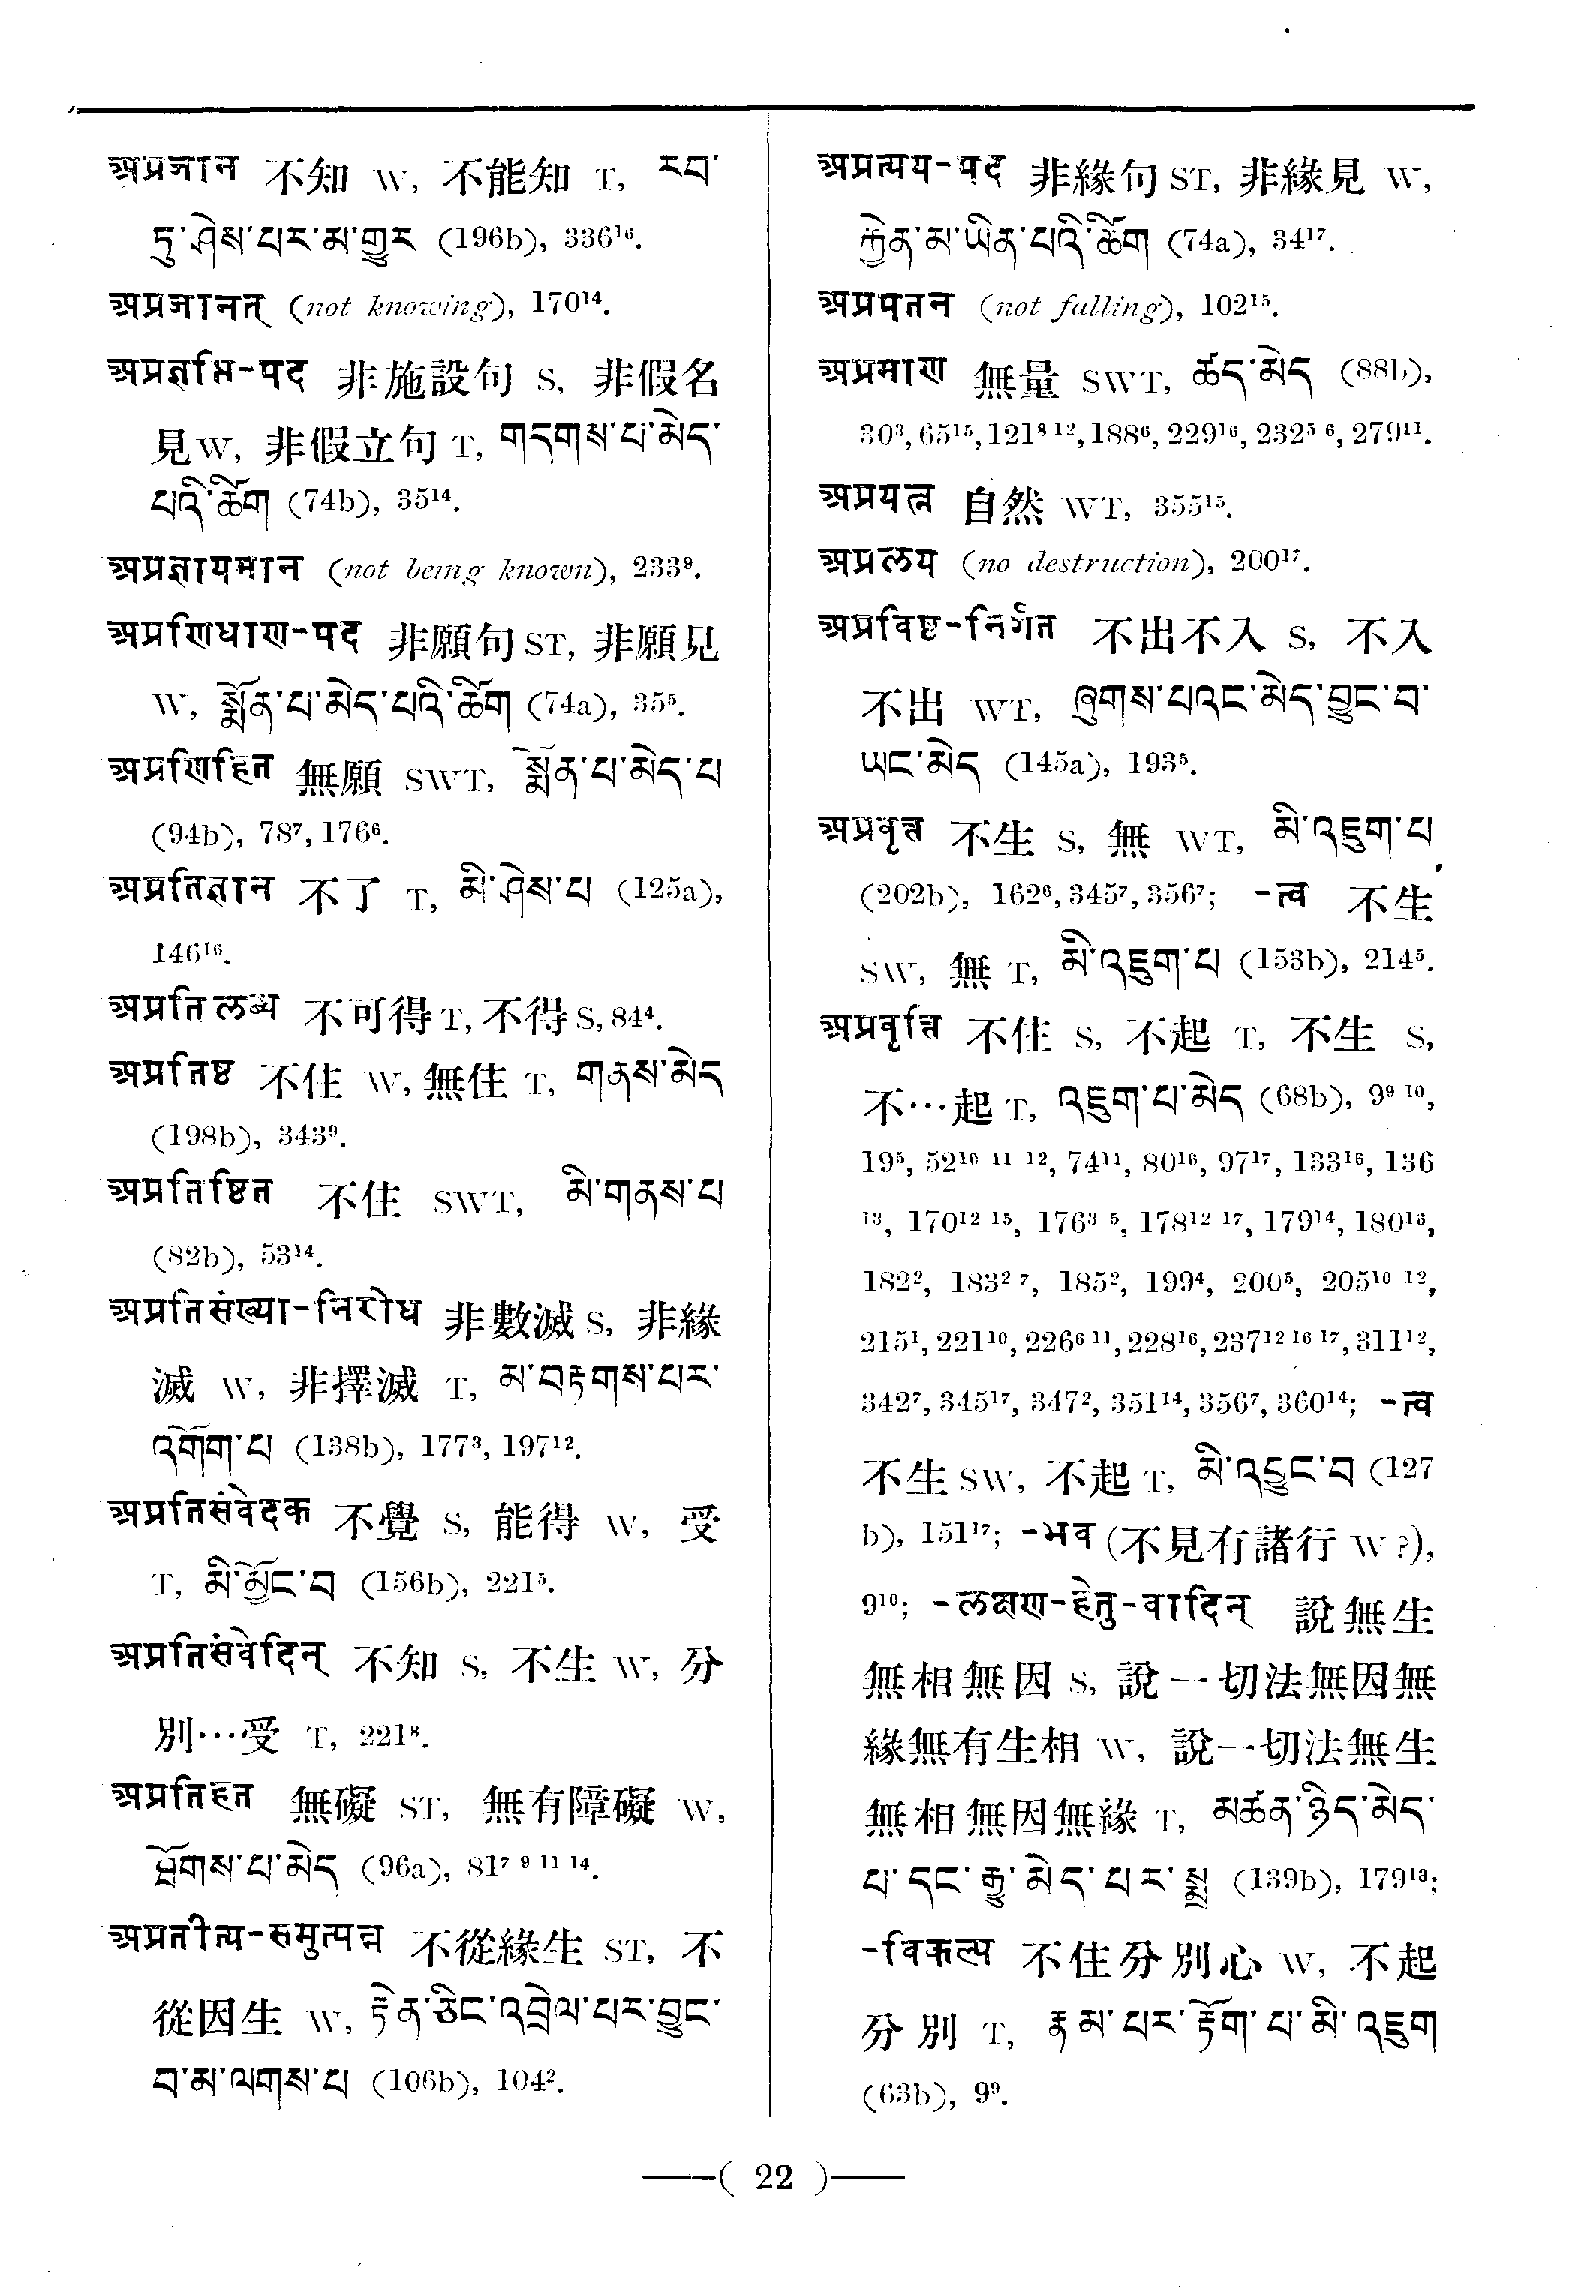 अप्रजान 不知 W, 不能知 T, རབ་
ཏུ་ཤེས་པར་མ་གྱུར (196b), 336¹⁶.
अप्रजानत् (not knowing), 170¹⁴.
अप्रज्ञप्ति-पद 非施設句 S, 非假名
見 W, 非假立句 T, གདགས་པ་མེད་
པའི་ཚིག (74b), 35¹⁴.
अप्रज्ञायमान (not being known), 233⁹.
अप्रणिधाण-पद 非願句 ST, 非願見
W, སྨོན་པ་མེད་པའི་ཚིག (74a), 35⁵.
अप्रणिहित 無願 SWT, སྨོན་པ་མེད་པ
(94b), 78⁷, 176⁶.
अप्रतिज्ञान 不了 T, མི་ཤེས་པ (125a),
146¹⁶.
अप्रतिलब्ध 不可得 T, 不得 S, 84⁴.
अप्रतिष्ठ 不住 W, 無住 T, གནས་མེད
(198b), 343⁹.
अप्रतिष्ठित 不住 SWT, མི་གནས་པ
(82b), 53¹⁴.
अप्रतिसंख्या-निरोध 非數滅 S, 非緣
滅 W, 非擇滅 T, མ་བརྟགས་པར་
འགོག་པ (138b), 177³, 197¹².
अप्रतिसंवेदक 不覺 S, 能得 W, 受
T, མི་མྱོང་བ (156b), 221⁵.
अप्रतिसंवेदिन् 不知 S, 不生 W, 分
別…受 T, 221⁸.
अप्रतिहत 無礙 ST, 無有障礙 W,
ཐོགས་པ་མེད (96a), 81⁷ ⁹ ¹¹ ¹⁴.
अप्रतीत्य-समुत्पन्न 不從緣生 ST, 不
從因生 W, རྟེན་ཅིང་འབྲེལ་པར་བྱུང་
བ་མ་ལགས་པ (106b), 104².
अप्रत्यय-पद 非緣句 ST, 非緣見 W,
རྐྱེན་མ་ཡིན་པའི་ཚིག (74a), 34¹⁷.
अप्रपतन (not falling), 102¹⁵.
अप्रमाण 無量 SWT, ཚད་མེད (88b),
30³, 65¹⁵, 121⁸ ¹², 188⁶, 229¹⁶, 232⁵ ⁶, 279¹¹.
अप्रयत्न 自然 WT, 355¹⁵.
अप्रलय (no destruction), 200¹⁷.
अप्रविष्ट-निर्गत 不出不入 S, 不入
不出 WT, ཞུགས་པའང་མེད་བྱུང་བ་
ཡང་མེད (145a), 193⁵.
अप्रवृत्त 不生 S, 無 WT, མི་འཇུག་པ
(202b), 162⁶, 345⁷, 356⁷; -त्व 不生
SW, 無 T, མི་འཇུག་པ (153b), 214⁵.
अप्रवृत्ति 不住 S, 不起 T, 不生 S,
不…起 T, འཇུག་པ་མེད (68b), 9⁹ ¹⁰,
19⁵, 52¹⁰ ¹¹ ¹², 74¹¹, 80¹⁶, 97¹⁷, 133¹⁶, 136
¹³, 170¹² ¹⁵, 176³ ⁵, 178¹² ¹⁷, 179¹⁴, 180¹³,
182², 183² ⁷, 185², 199⁴, 200⁵, 205¹⁰ ¹²,
215¹, 221¹⁰, 226⁶ ¹¹, 228¹⁶, 237¹² ¹⁶ ¹⁷, 311¹²,
342⁷, 345¹⁷, 347², 351¹⁴, 356⁷, 360¹⁴; -त्व
不生 SW, 不起 T, མི་འབྱུང་བ (127
b), 151¹⁷; -भव (不見有諸行 W ?),
9¹⁰; -लक्षण-हेतु-वादिन् 說無生
無相無因 S, 說一切法無因無
緣無有生相 W, 說一切法無生
無相無因無緣 T, མཚན་ཉིད་མེད་
པ་དང་རྒྱུ་མེད་པར་སྨྲ (139b), 179¹³;
-विकल्प 不住分別心 W, 不起
分別 T, རྣམ་པར་རྟོག་པ་མི་འཇུག
(63b), 9⁹.
—( 22 )—